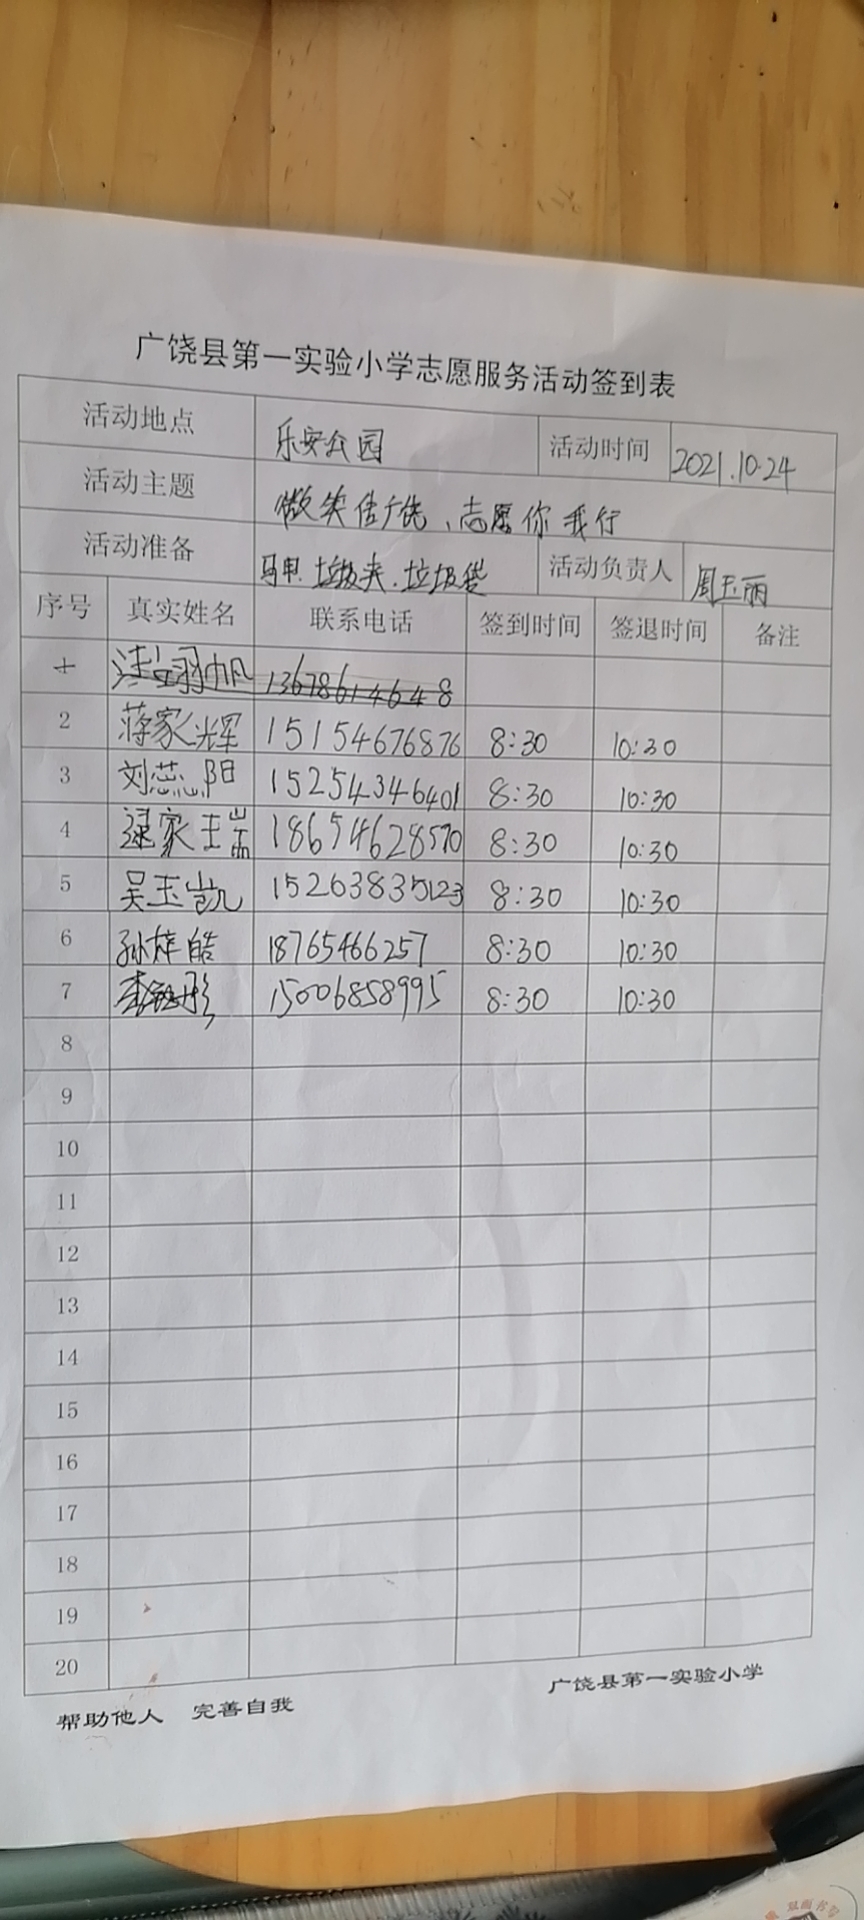 广饶县第一实验小学志愿服务活动签到表
活动地点 乐安公园 活动时间 2021.10.24
活动主题 微笑佳广饶、志愿你我行
活动准备 马甲.垃圾夹.垃圾袋 活动负责人 周玉丽
序号 真实姓名 联系电话 签到时间 签退时间 备注
13678614648
2 蒋家辉 15154676876 8:30 10:30
3 刘蕊阳 15254346401 8:30 10:30
4 逯家瑞 18654628570 8:30 10:30
5 吴玉凯 15263835123 8:30 10:30
6 孙梓皓 18765466257 8:30 10:30
7 15006858995 8:30 10:30
8
9
10
11
12
13
14
15
16
17
18
19
20
帮助他人 完善自我 广饶县第一实验小学